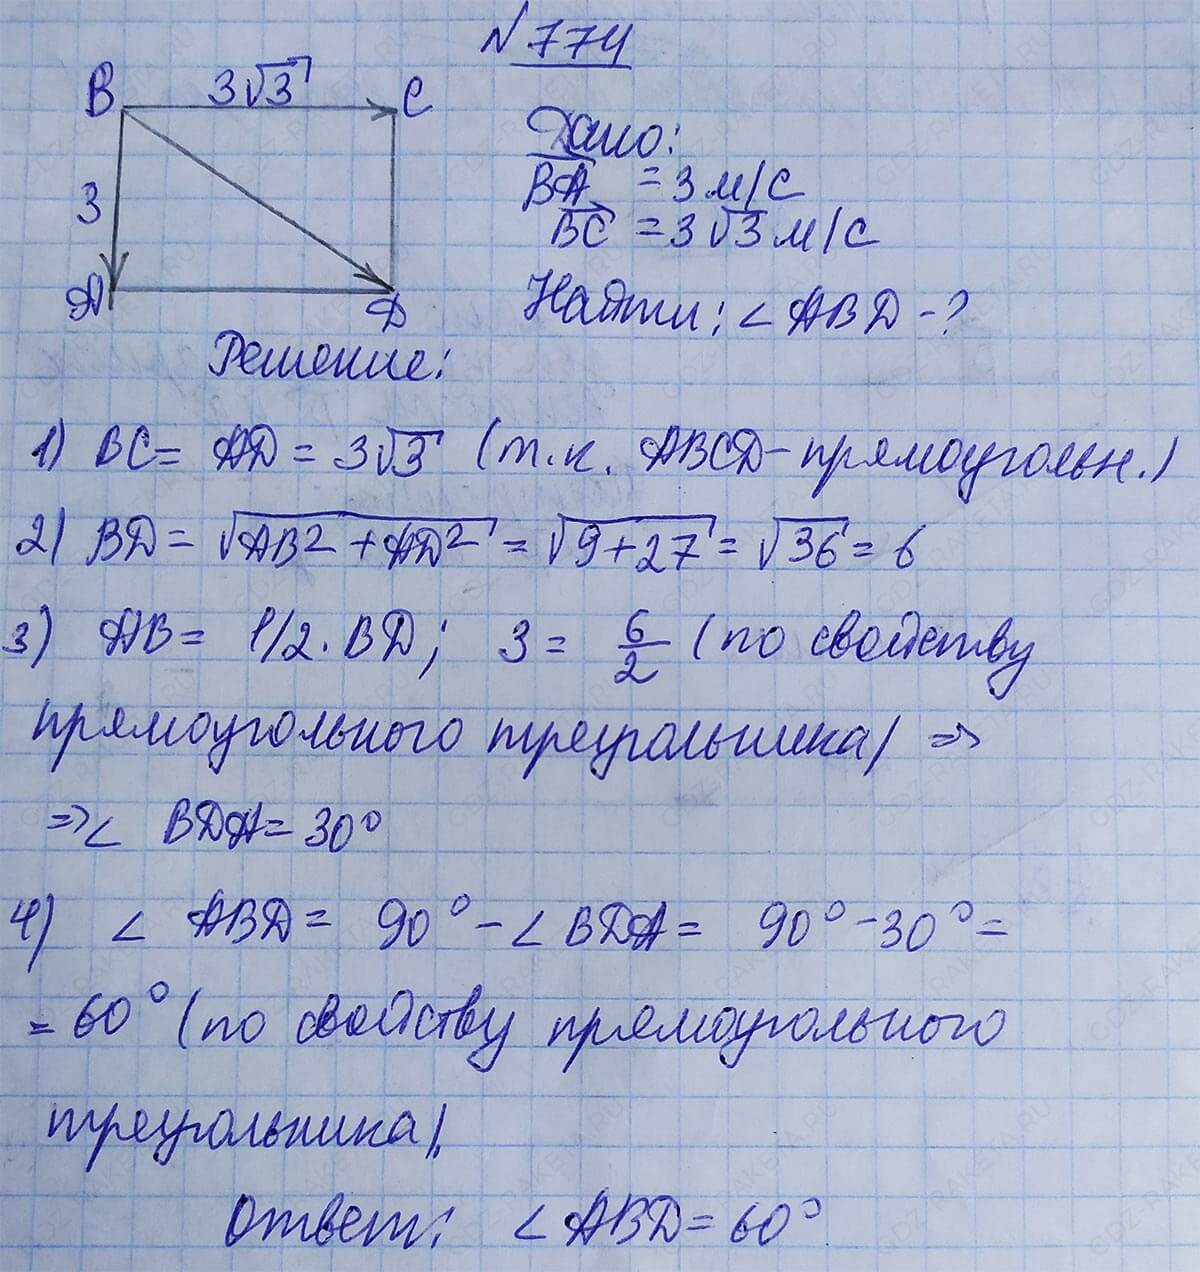 N 774
B 3√3 C
3
A D
Дано:
BA = 3 м/с
BC = 3√3 м/с
Найти: ∠ABD - ?
Решение:
1) BC = AD = 3√3 (т.к. ABCD - прямоугольн.)
2) BD = √AB² + AD² = √9 + 27 = √36 = 6
3) AB = 1/2 · BD; 3 = 6/2 (по свойству
прямоугольного треугольника) =>
=> ∠ BDA = 30°
4) ∠ ABD = 90° - ∠ BDA = 90° - 30° =
= 60° (по свойству прямоугольного
треугольника).
Ответ: ∠ABD = 60°